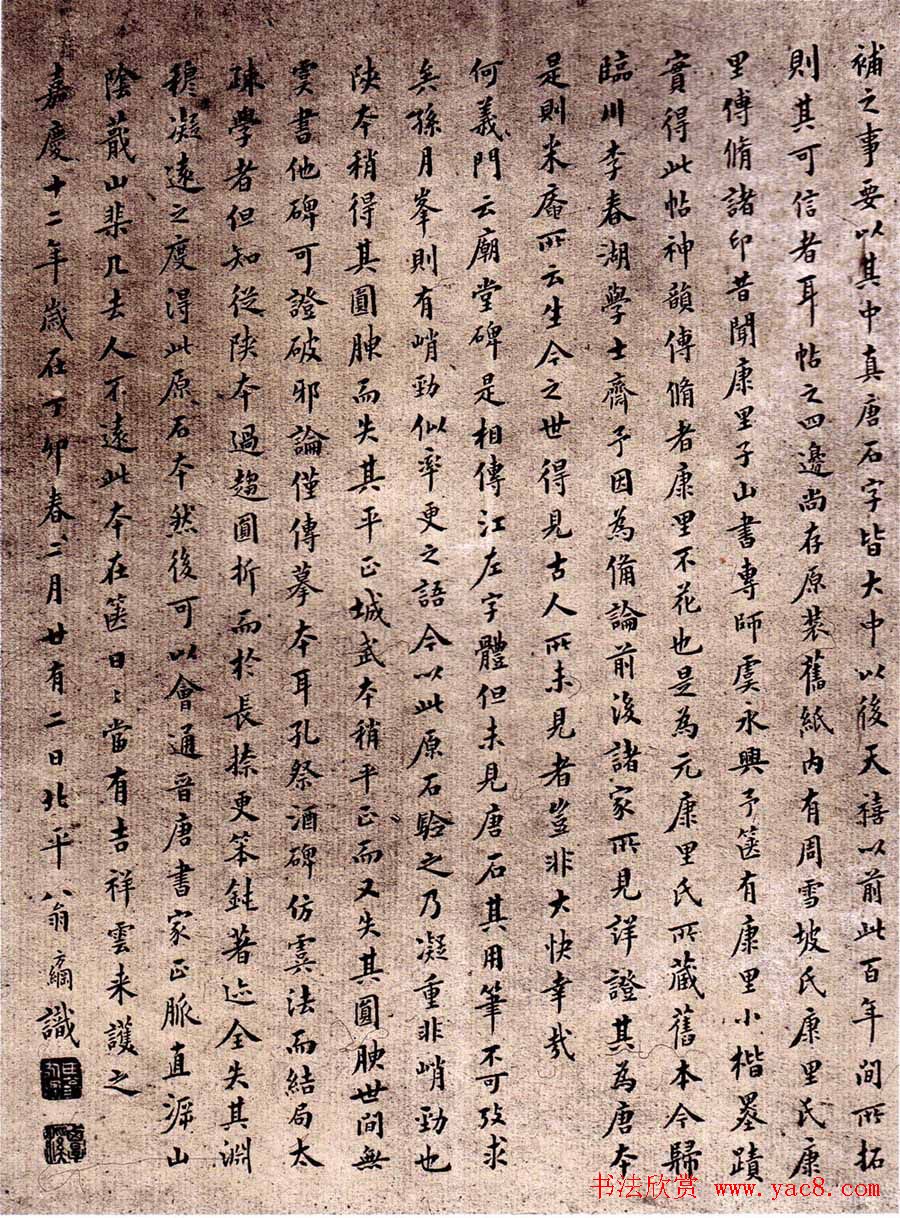 補之事要以其中真唐石字皆大中以後天禧以前此百年間所拓
則其可信者耳帖之四邊尚存原裝舊紙內有周雪坡氏康里氏康
里傅脩諸印昔聞康里子山書專師虞永興予篋有康里小楷墨蹟
實得此帖神韻傅脩者康里不花也是為元康里氏所藏舊本今歸
臨川李春湖學士齋予因為備論前後諸家所見詳證其為唐本
是則米庵所云生今之世得見古人所未見者豈非大快幸哉
何義門云廟堂碑是相傳江左字體但未見唐石其用筆不可攷求
矣孫月峯則有峭勁似率更之語今以此原石驗之乃凝重非峭勁也
陝本稍得其圓腴而失其平正城武本稍平正而又失其圓腴世間無
虞書他碑可證破邪論僅傳摹本耳孔祭酒碑仿虞法而結局太
疎學者但知從陝本過趨圓折而於長捺更笨鈍著迹全失其淵
穆凝遠之度得此原石本然後可以會通晉唐書家正脈直溯山
陰蕺山棐几去人不遠此本在篋日日當有吉祥雲来護之
嘉慶十二年歲在丁卯春二月廿有二日北平翁方綱識
覃溪
书法欣赏 www.yac8.com